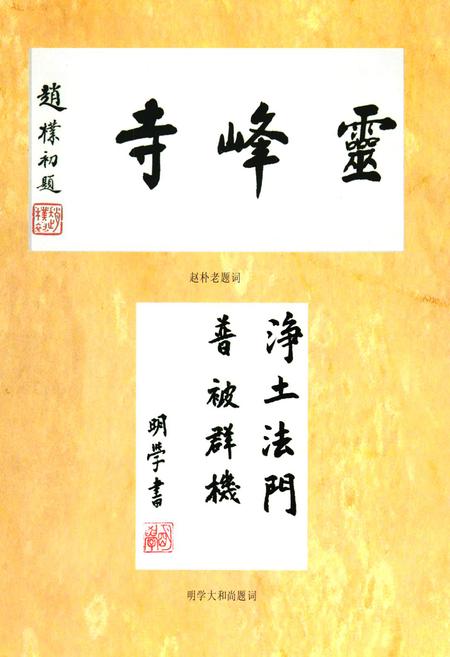 靈峰寺
趙樸初題
趙樸初
赵朴老题词
浄土法門
普被群機
明學書
明學
明学大和尚题词